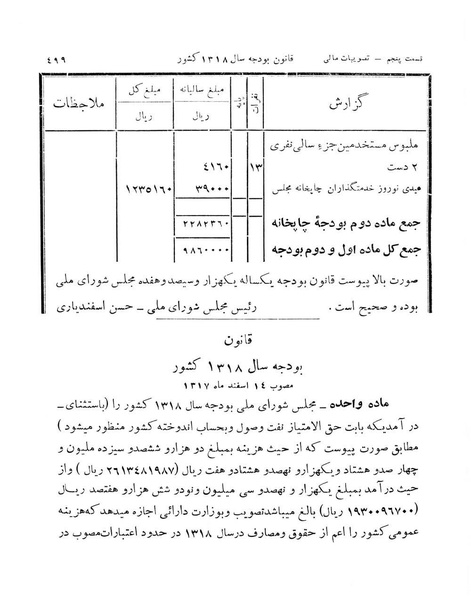 قسمت پنجم – تصویبات مالی قانون بودجه سال ۱۳۱۸ کشور ٤٩٩
گزارش نفرات پایه مبلغ سالیانه مبلغ کل ملاحظات
ریال ریال
ملبوس مستخدمین جزء سالی نفری
۲ دست ۱۳ ٤١٦٠
عیدی نوروز خدمتگذاران چاپخانه مجلس ۳۹۰۰۰ ۱۲۳۵۱۶۰
جمع ماده دوم بودجهٔ چاپخانه ۲۲۸۲۳۶۰
جمع کل ماده اول و دوم بودجه ۹۸۶۰۰۰۰
صورت بالا پیوست قانون بودجه یکساله یکهزار وسیصدوهفده مجلس شورای ملی
بوده و صحیح است . رئیس مجلس شورای ملی – حسن اسفندیاری
قانون
بودجه سال ۱۳۱۸ کشور
مصوب ۱٤ اسفند ماه ۱۳۱۷
ماده واحده – مجلس شورای ملی بودجه سال ۱۳۱۸ کشور را (باستثنای –
در آمدیکه بابت حق الامتیاز نفت وصول وبحساب اندوخته کشور منظور میشود )
مطابق صورت پیوست که از حیث هزینه بمبلغ دو هزارو ششصدو سیزده ملیون و
چهار صدو هشتاد ویکهزارو نهصدو هشتادو هفت ریال (۲٦۱۳٤۸۱۹۸۷ ریال ) واز
حیث درآمد بمبلغ یکهزار و نهصدو سی میلیون ونودو شش هزارو هفتصد ریـال
(۱۹۳۰۰۹٦۷۰۰ ریال) بالغ میباشدتصویب وبوزارت دارائی اجازه میدهد که هزینه
عمومی کشور را اعم از حقوق ومصارف درسال ۱۳۱۸ در حدود اعتبارات مصوب در